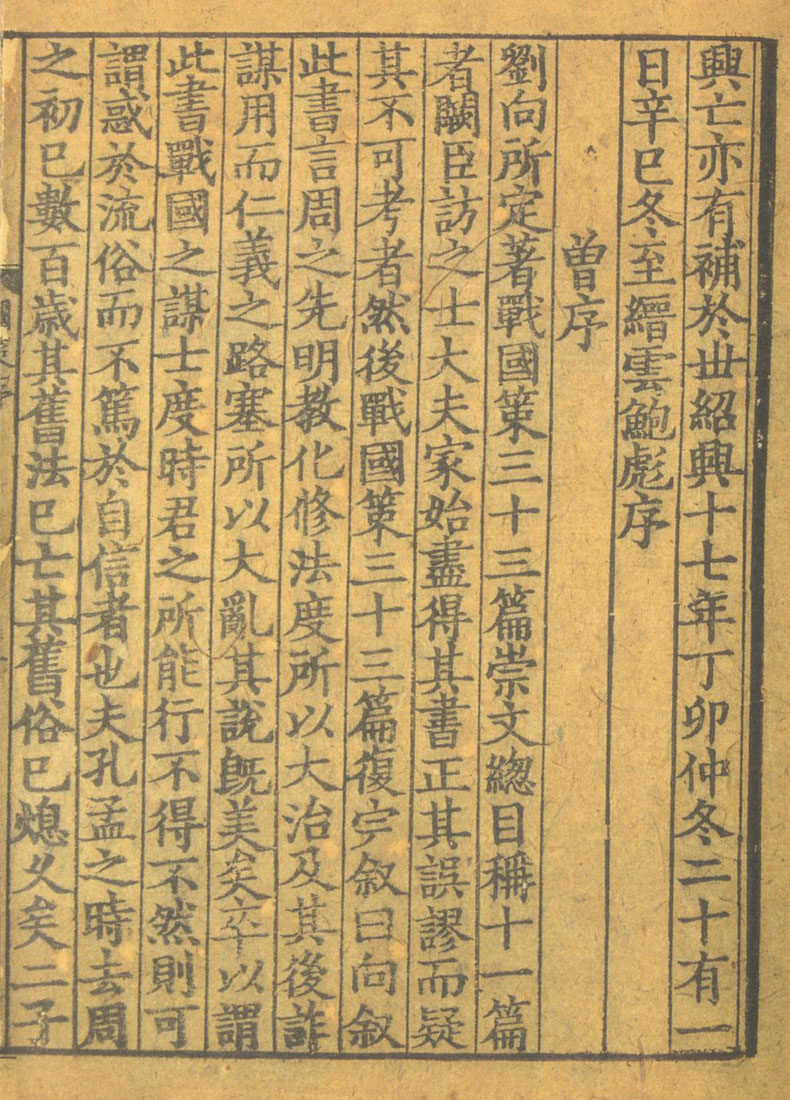 興亡亦有補於丗紹興十七年丁卯仲冬二十有一
日辛巳冬至縉雲鮑彪序
曾序
劉向所定著戰國策三十三篇崇文緫目稱十一篇
者闕臣訪之士大夫家始盡得其書正其誤謬而疑
其不可考者然後戰國策三十三篇復完叙曰向叙
此書言周之先明教化修法度所以大治及其後詐
謀用而仁義之路塞所以大亂其說旣美矣卒以謂
此書戰國之謀士度時君之所能行不得不然則可
謂惑於流俗而不篤於自信者也夫孔孟之時去周
之初已數百歳其舊法已亡其舊俗已熄久矣二子